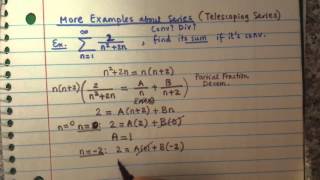 More Examples about Series (Telescoping Series)
Conv? Div?
Ex: ∞ Σ n=1 2/(n²+2n) , find its sum if it's conv.
n²+2n = n(n+2)
n(n+2) ( 2/(n²+2n) = A/n + B/(n+2) ) Partial Fraction Decom.
2 = A(n+2) + Bn
n=0 : 2 = A(2) + B(0)
A = 1
n=-2: 2 = A(0) + B(-2)